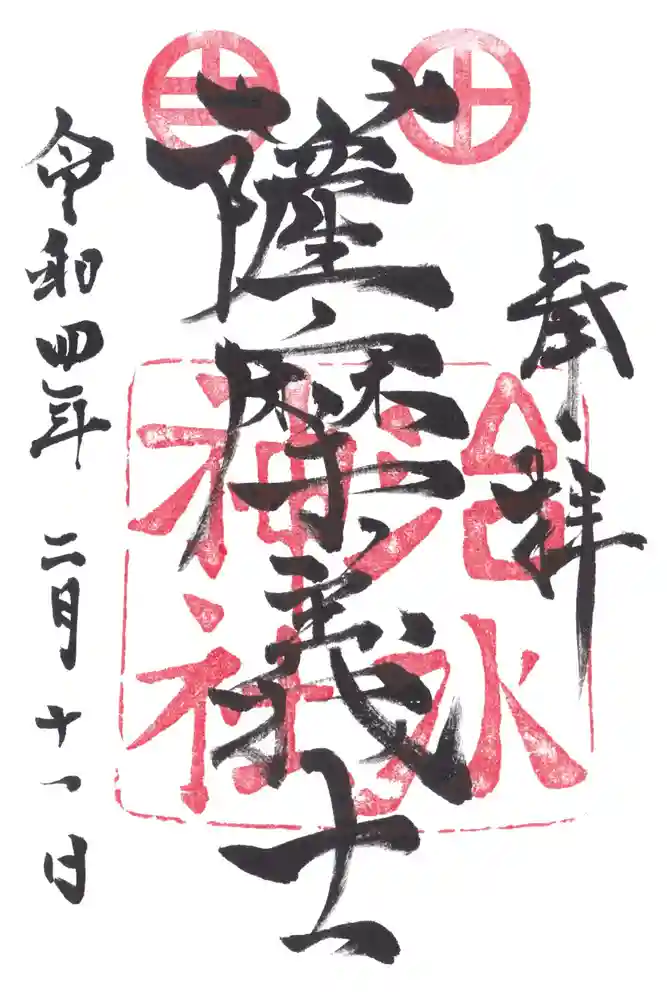 奉拝
薩摩義士
治水神社
令和四年 二月十一日